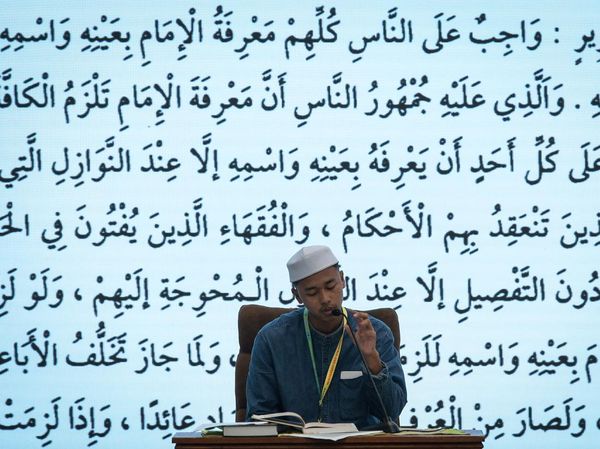 ـريرٍ : وَاجِبٌ عَلَى النَّاسِ كُلِّهِمْ مَعْرِفَةُ الْإِمَامِ بِعَيْنِهِ وَاسْمِهِ
ـهِ . وَالَّذِي عَلَيْهِ جُمْهُورُ النَّاسِ أَنَّ مَعْرِفَةَ الْإِمَامِ تَلْزَمُ الْكَافَّةَ
عَلَى كُلِّ أَحَدٍ أَنْ يَعْرِفَهُ بِعَيْنِهِ وَاسْمِهِ إلَّا عِنْدَ النَّوَازِلِ الَّتِي
ـذِينَ تَنْعَقِدُ بِهِمْ الْأَحْكَامُ ، وَالْفُقَهَاءِ الَّذِينَ يُفْتُونَ فِي الْحَـ
دُونَ التَّفْصِيلِ إلَّا عِنْدَ الْمُحْوِجَةِ إلَيْهِمْ ، وَلَوْ لَزِ
ـامَ بِعَيْنِهِ وَاسْمِهِ لَلَزِمَـ ، وَلَمَا جَازَ تَخَلُّفُ الْأَبَاعِـ
، وَلَصَارَ مِنْ الْعُرْفِ ـادَ عَائِدًا ، وَإِذَا لَزِمَتْ